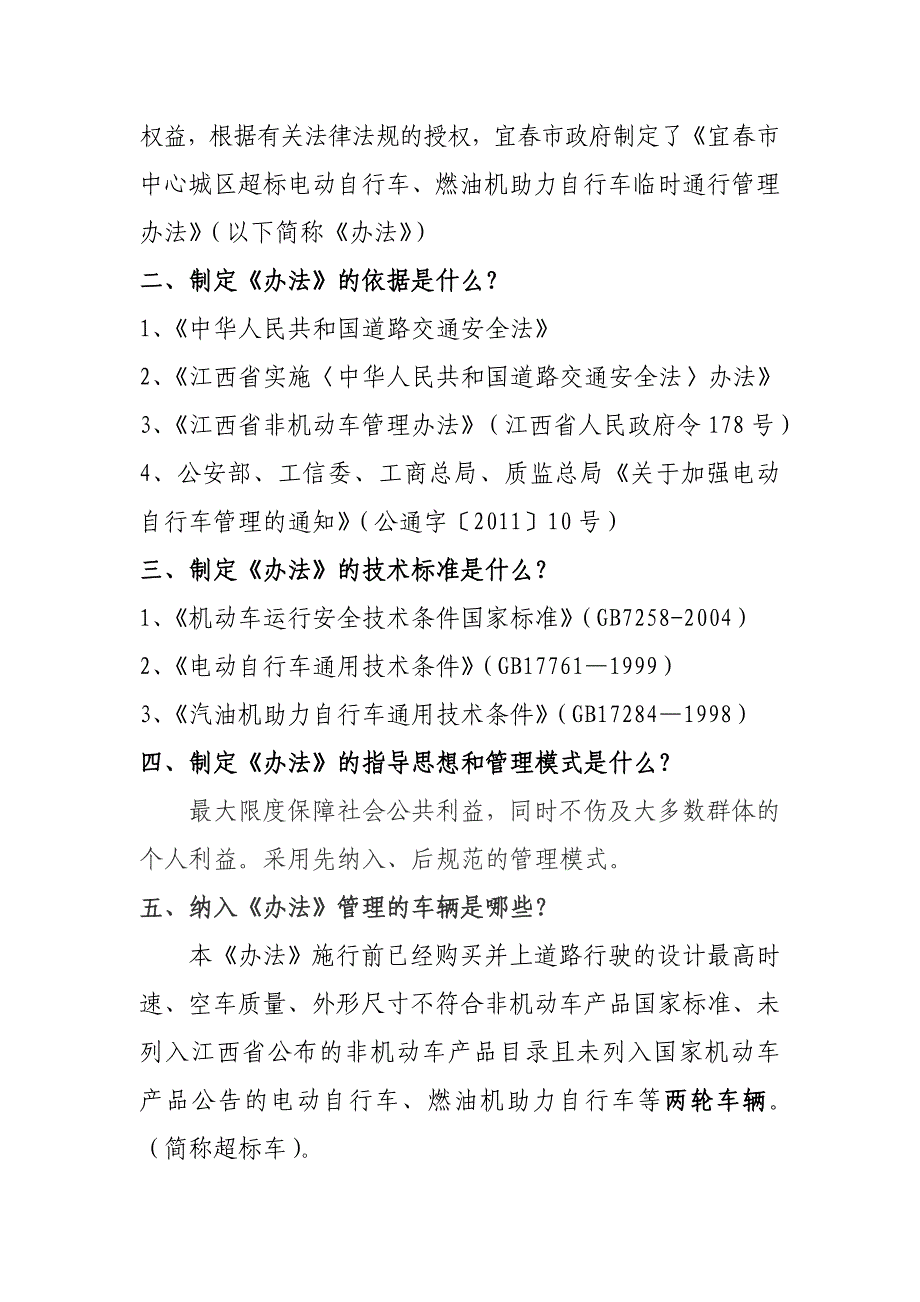 权益，根据有关法律法规的授权，宜春市政府制定了《宜春市
中心城区超标电动自行车、燃油机助力自行车临时通行管理
办法》（以下简称《办法》）
二、制定《办法》的依据是什么？
1、《中华人民共和国道路交通安全法》
2、《江西省实施〈中华人民共和国道路交通安全法〉办法》
3、《江西省非机动车管理办法》（江西省人民政府令 178 号）
4、公安部、工信委、工商总局、质监总局《关于加强电动
自行车管理的通知》（公通字〔2011〕10 号）
三、制定《办法》的技术标准是什么？
1、《机动车运行安全技术条件国家标准》（GB7258-2004）
2、《电动自行车通用技术条件》（GB17761—1999）
3、《汽油机助力自行车通用技术条件》（GB17284—1998）
四、制定《办法》的指导思想和管理模式是什么？
最大限度保障社会公共利益，同时不伤及大多数群体的
个人利益。采用先纳入、后规范的管理模式。
五、纳入《办法》管理的车辆是哪些？
本《办法》施行前已经购买并上道路行驶的设计最高时
速、空车质量、外形尺寸不符合非机动车产品国家标准、未
列入江西省公布的非机动车产品目录且未列入国家机动车
产品公告的电动自行车、燃油机助力自行车等两轮车辆。
（简称超标车）。